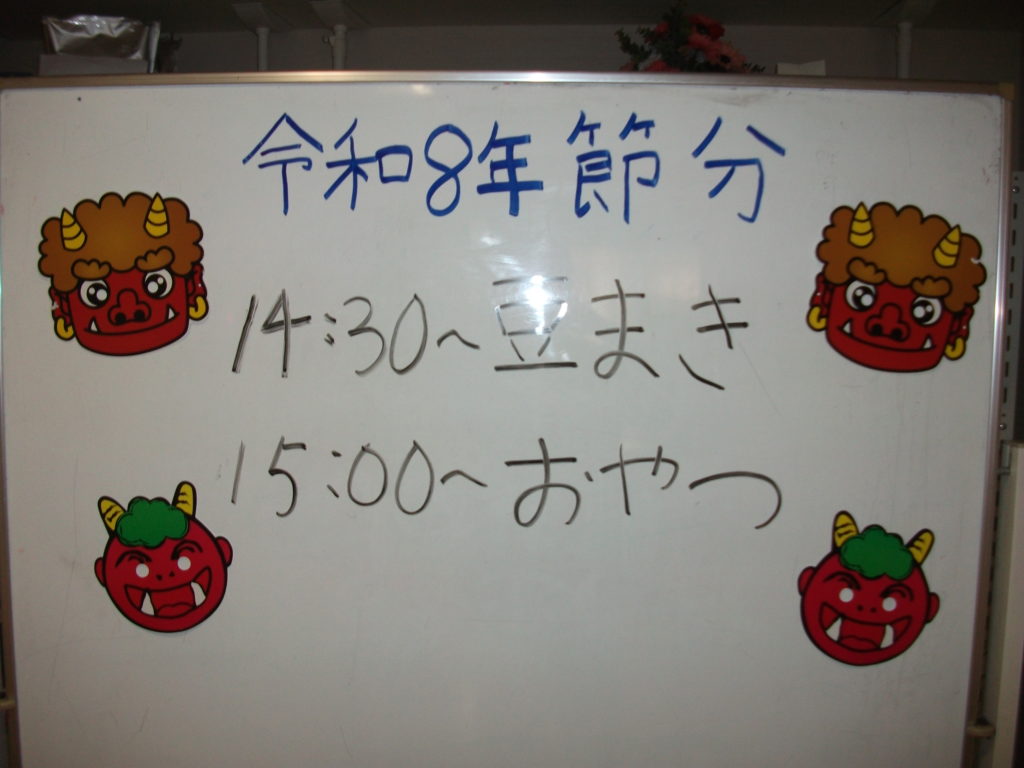 令和8年 節分
14:30~豆まき
15:00~おやつ